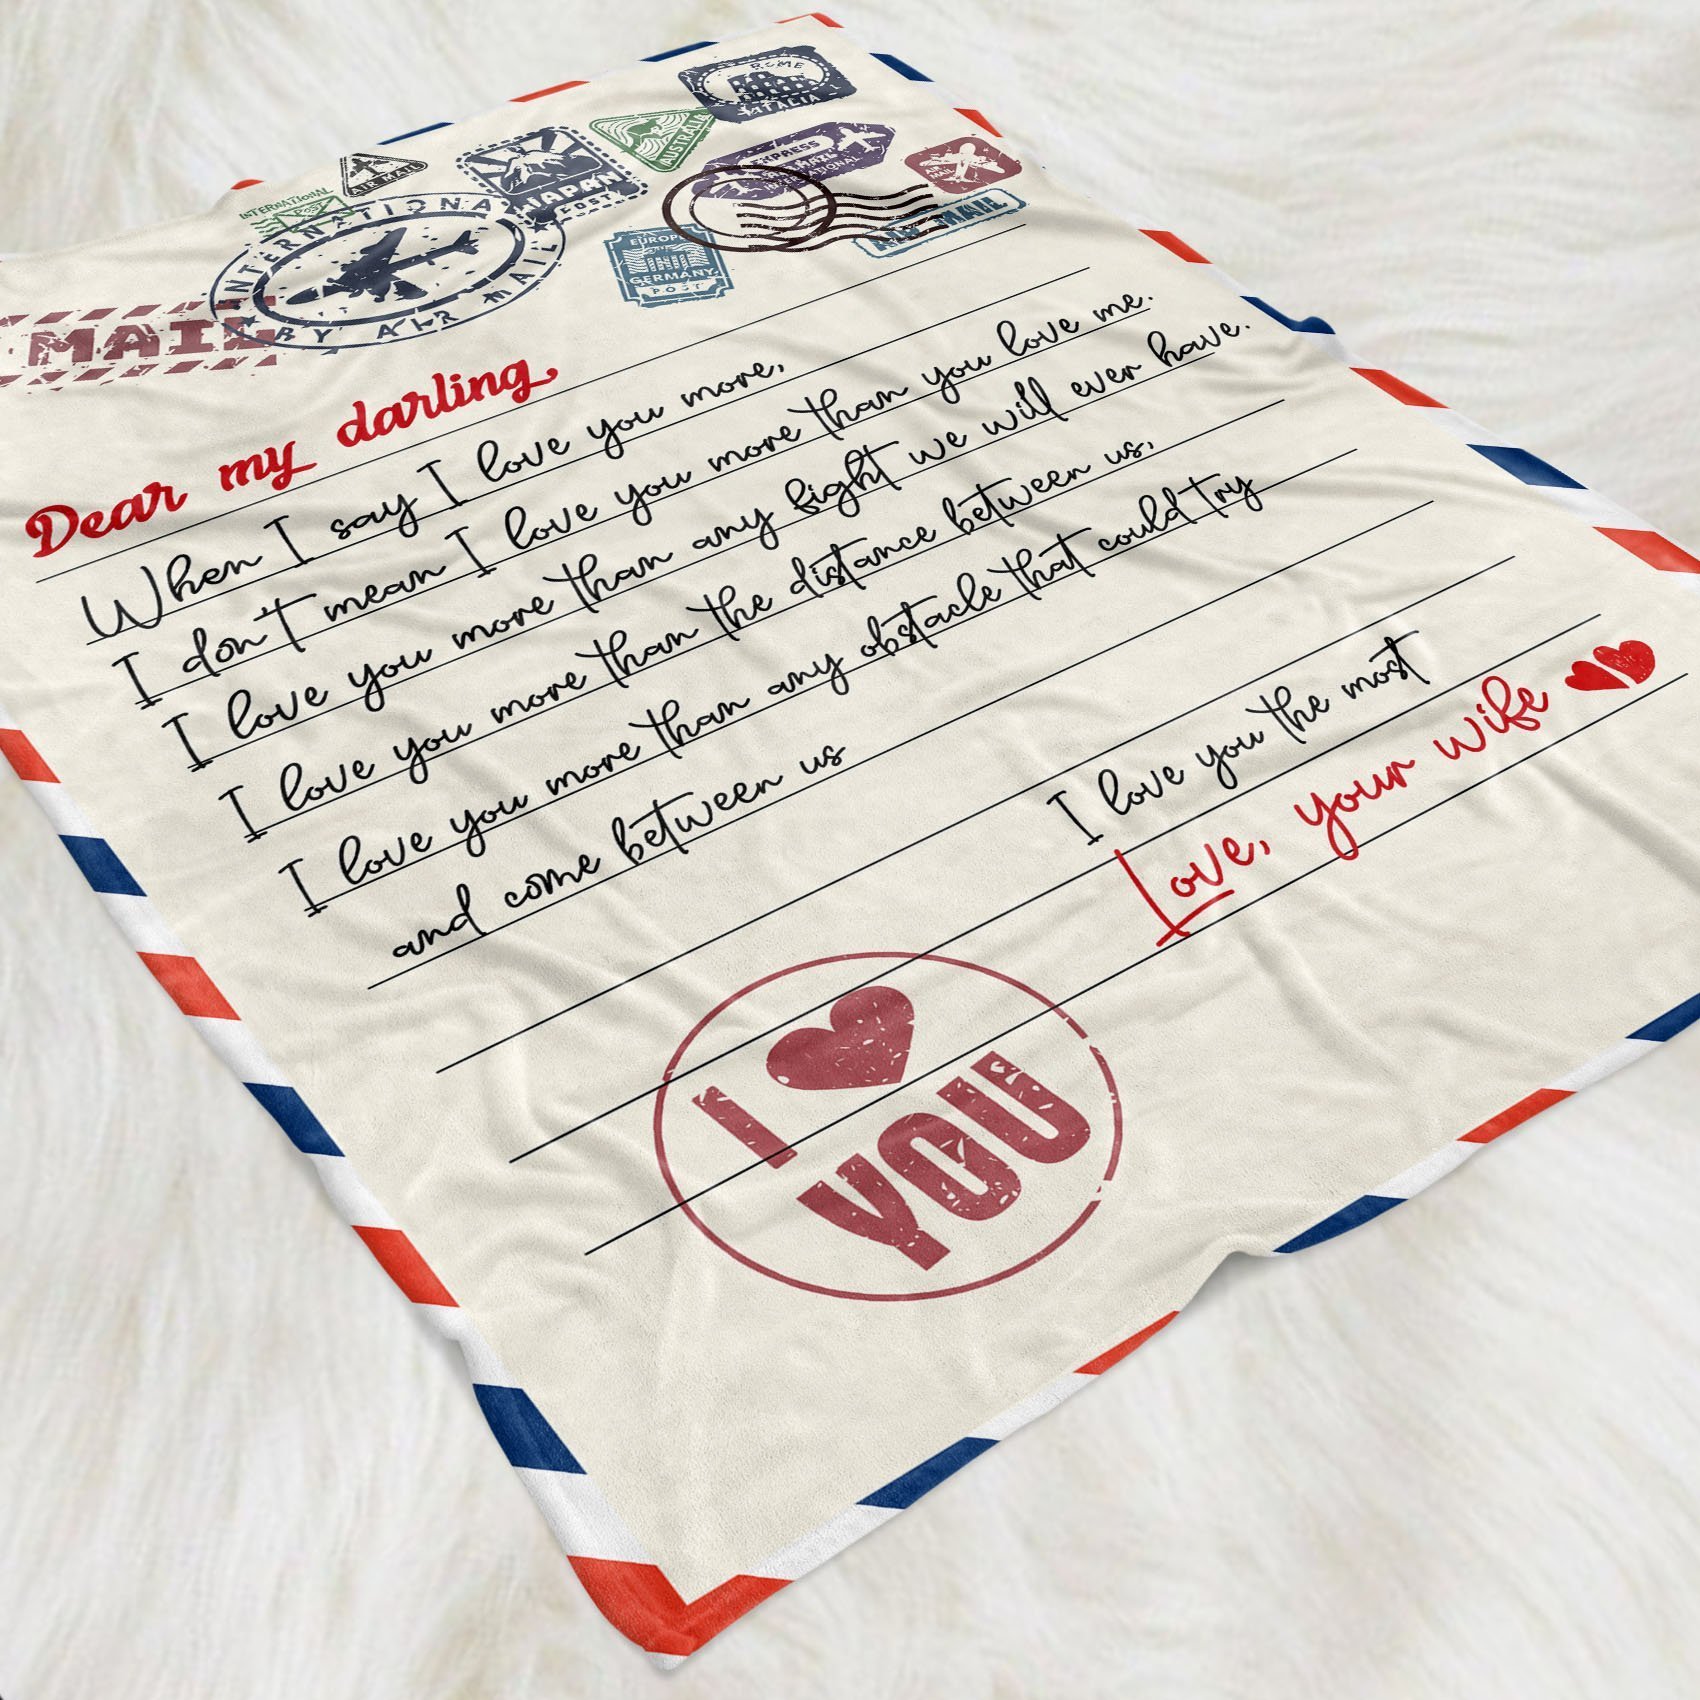 ROME
ITALIA
AUSTRALIA
EXPRESS
AIR MAIL
INTERNATIONAL
AIR MAIL
JAPAN
POST
AIR MAIL
INTERNATIONAL
POST
INTERNATIONAL
BY AIR MAIL
AIR MAIL
EUROPE
GERMANY
POST
MAIL
Dear my darling,
When I say I love you more,
I don't mean I love you more than you love me.
I love you more than any fight we will ever have.
I love you more than the distance between us,
I love you more than any obstacle that could try
and come between us
I love you the most
Love, your wife
I ♥
YOU